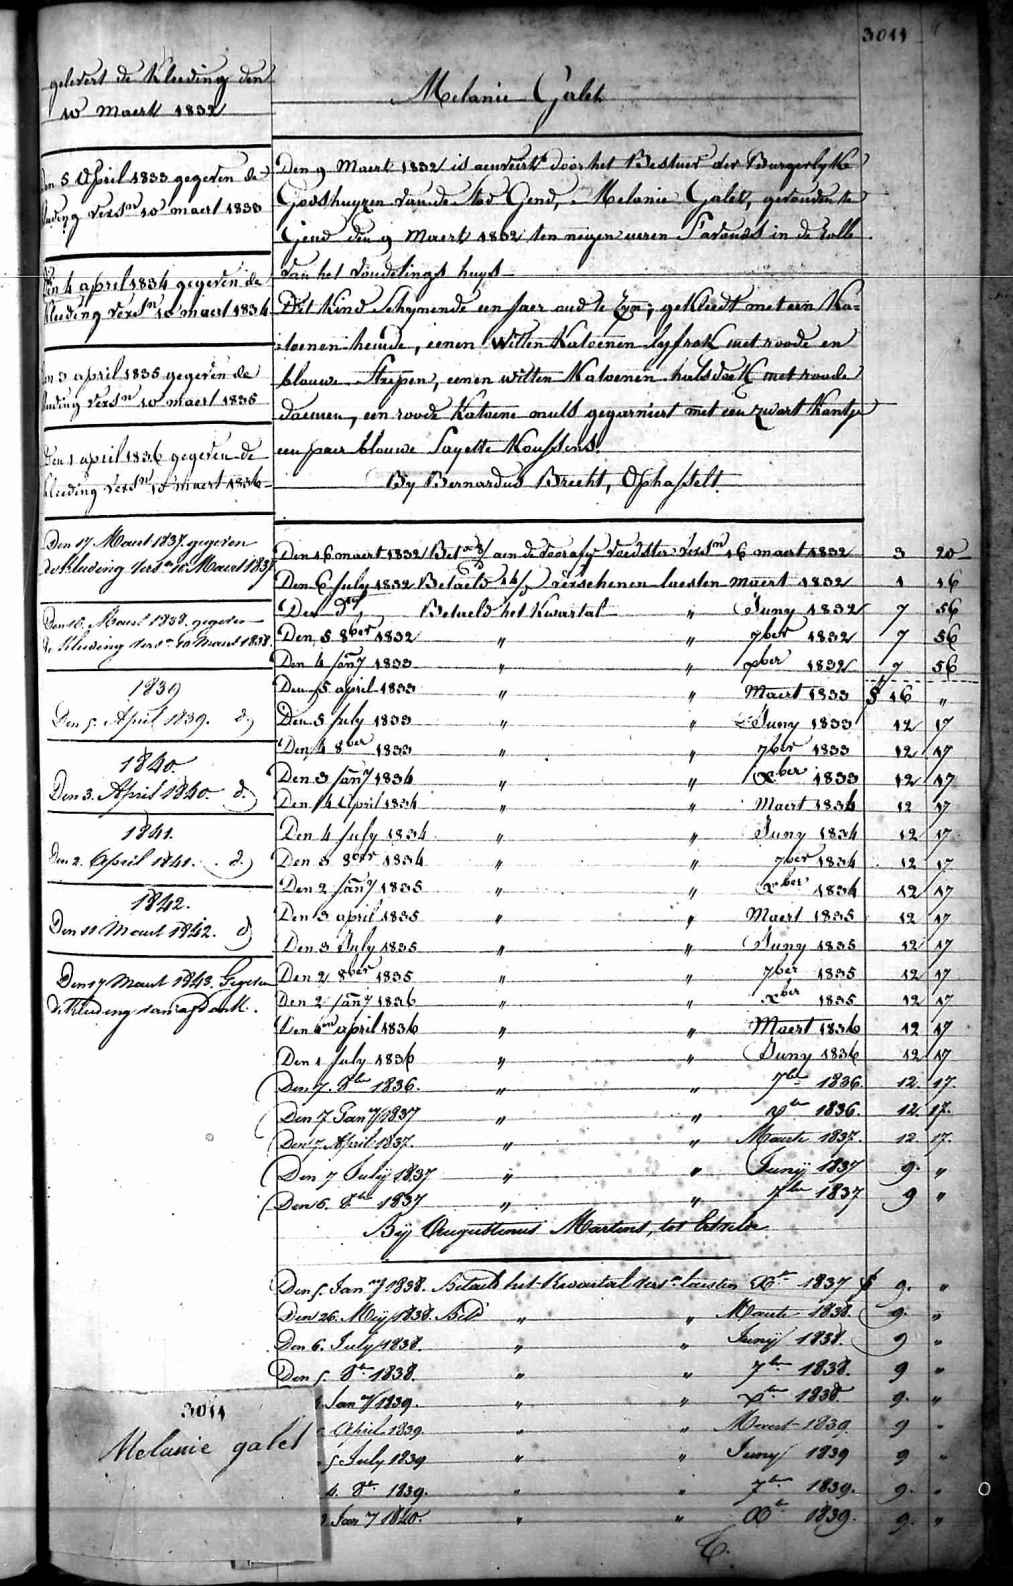 3011
Melanie Galet
gelevert de Kleeding den
10 maert 1832
Den 5 April 1833 gegeven de
kleeding versn 10 maert 1833
Den 4 april 1834 gegeven de
kleeding versn 10 maert 1834
Den 3 april 1835 gegeven de
kleeding versn 10 maert 1835
Den 1 april 1836 gegeven de
kleeding versn 10 maert 1836
Den 17 Maert 1837 gegeven
de kleeding versn 10 Maert 1837
Den 16 Maert 1838 gegeven
de kleeding versn 10 Maert 1838
1839
Den 5. April 1839. d.)
1840.
Den 3. April 1840. d.)
1841.
Den 2. April 1841. d.)
1842.
Den 11 Maert 1842. d)
Den 17 Maert 1843. Gegeven
de kleeding van afdank.
Den 9 Maert 1832 is aenveirt door het Bestuer der Burgerlyke
Godshuyzen van de Stad Gend, Melanie Galet, gevonden te
Gend den 9 Maert 1832 ten negen ueren s'avonds in de rolle
van het vondelings huys
Dit Kind schynende een jaer oud te zyn; gekleedt met een Ka=
toenen hemde, eenen witten Katoenen lyfrok met roode en
blauwe streepen, eenen witten Katoenen halsdoek met roode
daemen, een roode Katoene muts gegarniert met een zwart kantje
een paer blauwe Sayette Koussens.
By Bernardus Brecht, Ophasselt
Den 16 maert 1832 Bet aen de voorafg voedster versn 16 maert 1832 3 20
Den 6 July 1832 Betaeld verschenen laesten maert 1832 1 16
Den do Betaeld het Kwartal " Juny 1832 7 56
Den 5 8ber 1832 " " 7ber 1832 7 56
Den 4 Jany 1833 " " xber 1832 7 56
Den 5 april 1833 " " Maert 1833 16 "
Den 5 July 1833 " " Juny 1833 12 17
Den 4 8ber 1833 " " 7ber 1833 12 17
Den 3 Jany 1834 " " xber 1833 12 17
Den 4 April 1834 " " Maert 1834 12 17
Den 4 July 1834 " " Juny 1834 12 17
Den 3 8ber 1834 " " 7ber 1834 12 17
Den 2 Jany 1835 " " xber 1834 12 17
Den 3 april 1835 " " Maert 1835 12 17
Den 3 July 1835 " " Juny 1835 12 17
Den 2 8ber 1835 " " 7ber 1835 12 17
Den 2 Jany 1836 " " xber 1835 12 17
Den 1en april 1836 " " Maert 1836 12 17
Den 1 July 1836 " " Juny 1836 12 17
Den 7. 8ber 1836. " " 7ber 1836 12. 17.
Den 7 Jany 1837 " " xber 1836. 12. 17.
Den 7 April 1837. " " Maerte 1837. 12. 17.
Den 7 Julij 1837 " " Junij 1837 9. "
Den 6. 8ber 1837 " " 7ber 1837 9 "
Bij Augustinus Martens, tot
Den 5. Jany 1838. Betaeld het Kwartal versn laesten Xber 1837 9. "
Den 26. Meij 1838. Betd " " Maerte 1838. 9. "
Den 6. July 1838. " " Junij 1838. 9 "
Den 5. 8ber 1838. " " 7ber 1838. 9 "
Jany 1839. " " xber 1838 9. "
April 1839. " " Maert 1839 9 "
5 July 1839 " " Juny 1839 9 "
4. 8ber 1839. " " 7ber 1839. 9. "
Jany 1840. " " Xber 1839. 9. "
3011
Melanie galet